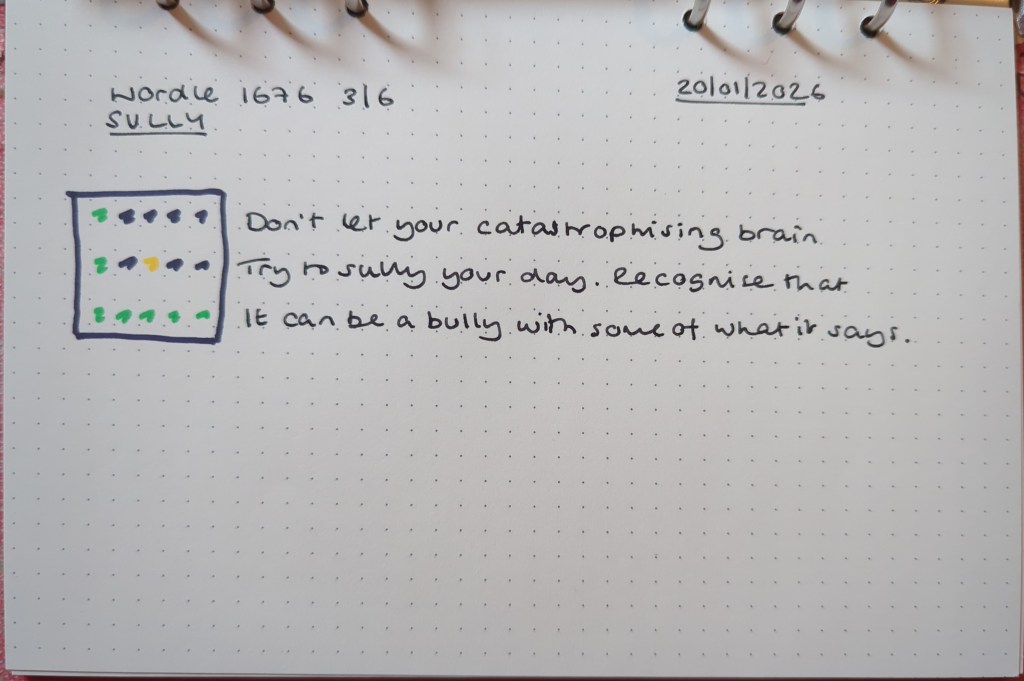 Wordle 1676 3/6
20/01/2026
SULLY
Don't let your catastrophising brain
Try to sully your day. Recognise that
It can be a bully with some of what it says.